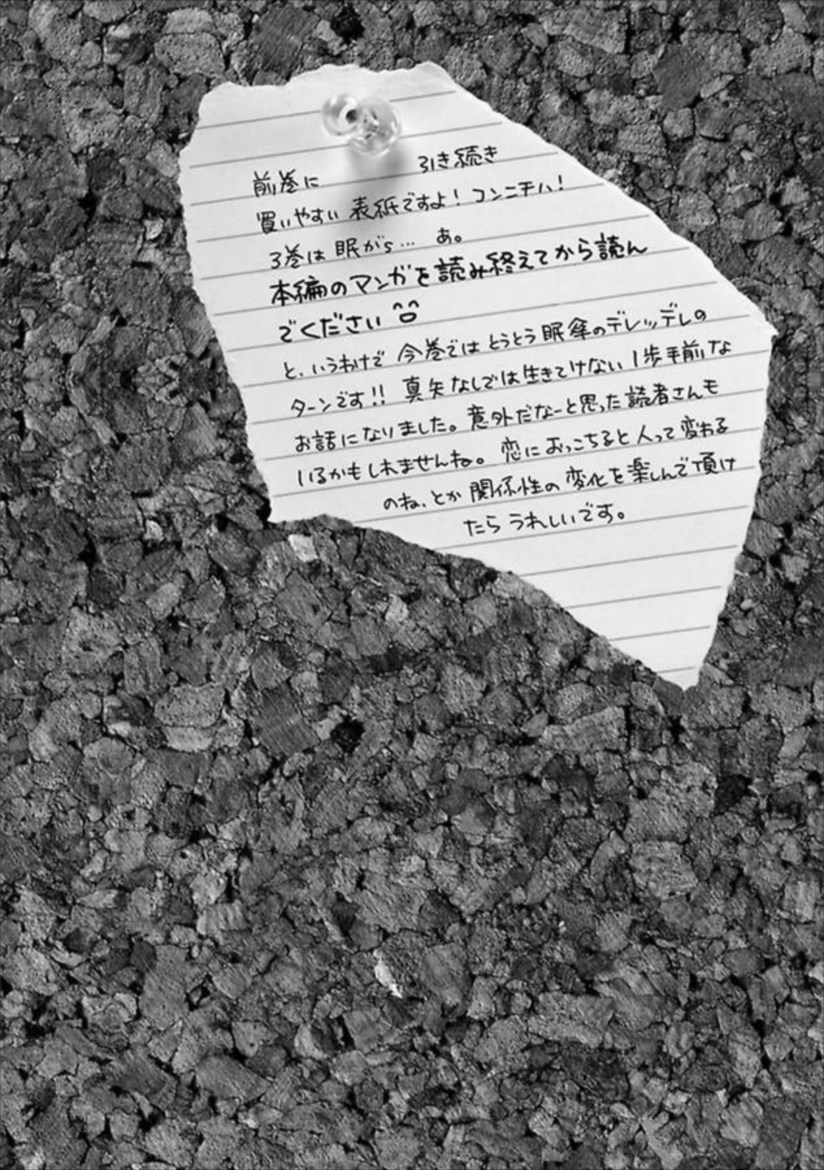 前巻に 引き続き
買いやすい表紙ですよ！コンニチハ！
3巻は眠がs… あ。
本編のマンガを読み終えてから読ん
でください
と、いうわけで 今巻では とうとう 眠傘のデレッデレの
ターンです!! 真矢なしでは生きてけない 1歩手前な
お話になりました。意外だなーと思った読者さんも
いるかもしれませんね。恋におっこちると人って変わる
のね、とか 関係性の変化を楽しんで頂け
たら うれしいです。